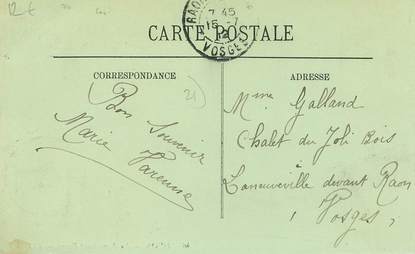 12 €
RAON
7 45
15 - 7
VOSGES
CARTE POSTALE
CORRESPONDANCE
ADRESSE
21)
Bon Souvenir
Marie Varenne
Mme Galland
Chalet du Joli Bois
à
Laneuveville devant Raon
(Vosges)